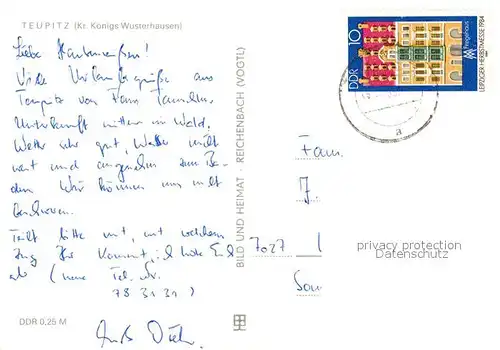 TEUPITZ (Kr. Königs Wusterhausen)
Liebe
Viele Urlaubsgrüße aus
Teupitz von Fam.
Unterkunft mitten im Wald.
Wetter sehr gut, Wasser
und angenehm zum Ba-
den. Wir können uns nicht
beschweren.
Teilt bitte mit, mit welchem
Zug Ihr kommt, ich hole Euch
ab (neue Tel. Nr.
78 31 31)
Gruß
DDR 0,25 M
BILD UND HEIMAT · REICHENBACH (VOGTL)
DDR 10
LEIPZIGER HERBSTMESSE 1984
a
Fam.
J.
7027 L
privacy protection
Datenschutz